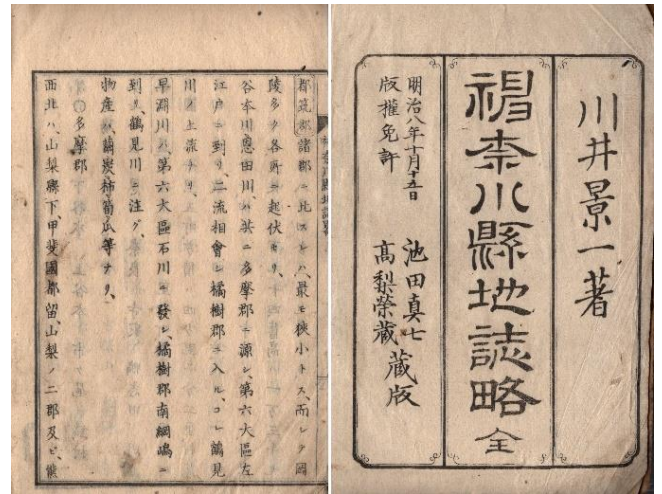 川井景一著
神奈川縣地誌略 全
明治八年十月十五日
版權免許
池田真七
高梨榮蔵
蔵版
都筑郡諸郡ニ比スレハ、最モ狭小トス、而シテ岡
陵多ク各所ニ起伏セリ、
谷本川恩田川ハ、共ニ多摩郡ニ源シ、第六大區左
江戸ニ到リ、二流相會シ橘樹郡ニ入ル、コレ鶴見
川ノ上流ナリ、
早淵川ハ、第六大區石川ニ發シ、橘樹郡南綱嶋ニ
到リ、鶴見川ニ注グ、
物産ハ、繭炭柿筍瓜等ナリ、
〇多摩郡
西北ハ、山梨縣下、甲斐國都留、山梨ノ二郡及ヒ、熊